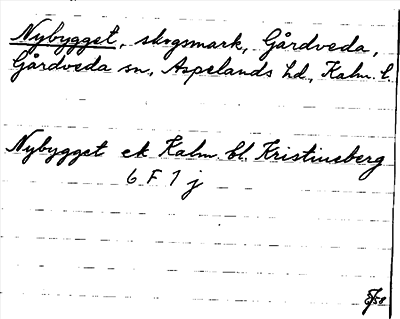 Nybygget, skogsmark, Gårdveda,
Gårdveda sn, Aspelands hd, Kalm. l.
Nybygget ek Kalm. bl. Kristineberg
6 F 1 j